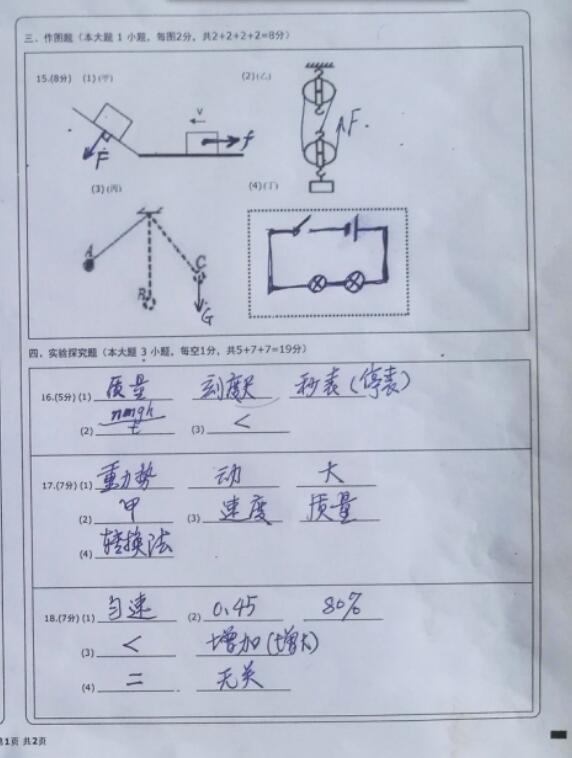 三、作图题（本大题 1 小题，每图2分，共2+2+2+2=8分）
15.(8分) (1)(甲) (2)(乙)
v
F f F
(3)(丙) (4)(丁)
A B C
G
四、实验探究题（本大题 3 小题，每空1分，共5+7+7=19分）
16.(5分) (1) 质量 刻度尺 秒表(停表)
(2) nmgh/t (3) <
17.(7分) (1) 重力势 动 大
(2) 甲 (3) 速度 质量
(4) 转换法
18.(7分) (1) 匀速 (2) 0.45 80%
(3) < 增加(增大)
(4) 二 无关
第1页 共2页